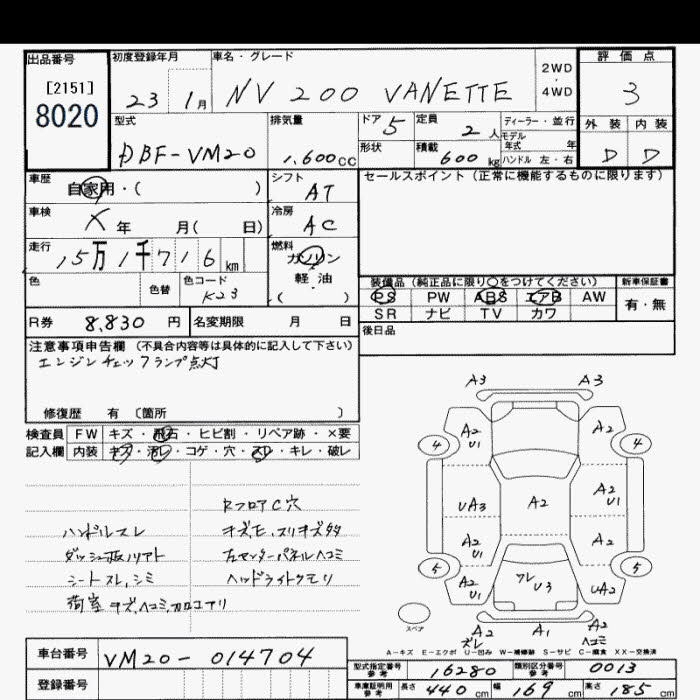 出品番号
[2151]
8020
初度登録年月
23 1月
車名・グレード
NV 200 VANETTE
2WD
・
4WD
評価点
3
外装 内装
D D
型式
DBF-VM20
排気量
1,600cc
ドア 5
形状
定員 2人
積載 600kg
ディーラー・並行
モデル
年式 年
ハンドル 左・右
車歴
自家用・( )
シフト
AT
車検
X 年 月( 日)
冷房
AC
走行
15万1千716km
燃料
ガソリン
軽・油
( )
色
色替
色コード
K23
R券 8,830 円
名変期限 月 日
セールスポイント(正常に機能するものに限ります)
装備品(純正品に限り○をつけてください)
PS PW ABS エアB AW
SR ナビ TV カワ
新車保証書
有・無
後日品
注意事項申告欄(不具合内容等は具体的に記入して下さい)
エンジンチェックランプ点灯
修復歴 有〔箇所 〕
検査員
記入欄
FW キズ・飛石・ヒビ割・リペア跡・×要
内装 キズ・汚レ・コゲ・穴・スレ・キレ・破レ
RフロアC穴
ハンドルスレ
キズ,モ,スリキズ多々
ダッシュ板ハリアト
左センターパネルヘコミ
シートスレ,シミ
ヘッドライトクモリ
荷室キズ,ヘコミ,
A3 A3
4 A2 U1 A2 4
UA3 A2 A2 U1
A2 U1 A2
5 A2 U1 フレ U3 UA2 5
スペア
A2 ズレ A1 A2 ヘコミ
A-キズ E-エクボ U-凹み W-補修跡 S-サビ C-腐食 XX-交換済
車台番号
VM20-014704
登録番号
型式指定番号
参考
16280
類別区分番号
参考
0013
車庫証明用
参考
長さ 440cm 幅 169cm 高さ 185cm